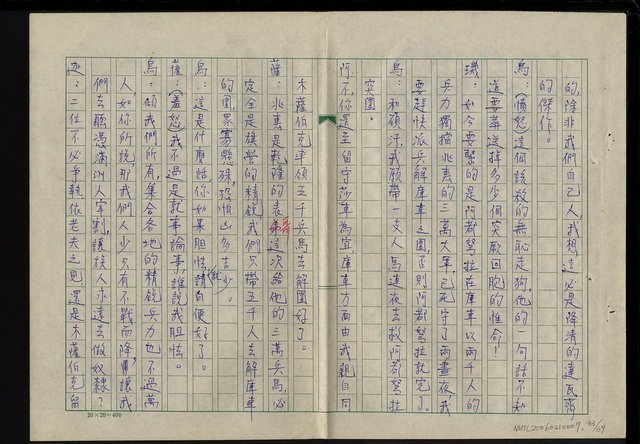 的，除非我們自己人，我想這必是降清的達瓦齊
的傑作。
烏：（憤怒）這個該殺的無恥走狗，他的一句話不知
道要葬送掉多少個突厥回胞的性命！
璣：如今要緊的是阿都努拉在庫車以兩千人的
兵力獨擋兆惠的三萬大軍，已死守了兩晝夜，我
要趕快派兵解庫車之圍，否則阿都努拉就完了。
烏：和碩汗，我願帶一支人馬連夜去救阿都努拉
突圍。
阿：不，你還是留守莎車為宜，庫車方面由我親自同
木薩伯克率領五千兵馬去解圍好了。
薩：兆惠是乾隆的表哥這次給他的三萬兵馬，必
定全是旗營的精銳，我們只帶五千人去解庫車
的圍，眾寡懸殊，恐怕凶多吉少。
烏：這是什麼話，你如果胆怯，請自便好了。
薩：（羞怒）我不過是就事論事，誰說我胆怯。
烏：碩我們所有，集合各地的精銳兵力也不過萬
人，如你所說，那我們人少只有不戰而降，讓我
們去聽憑滿洲人宰割，讓族人永遠去做奴隸？
迦：二位不必爭執，依老夫之見，還是木薩伯克留
20×20=400
NMTL20060210007. 33/69